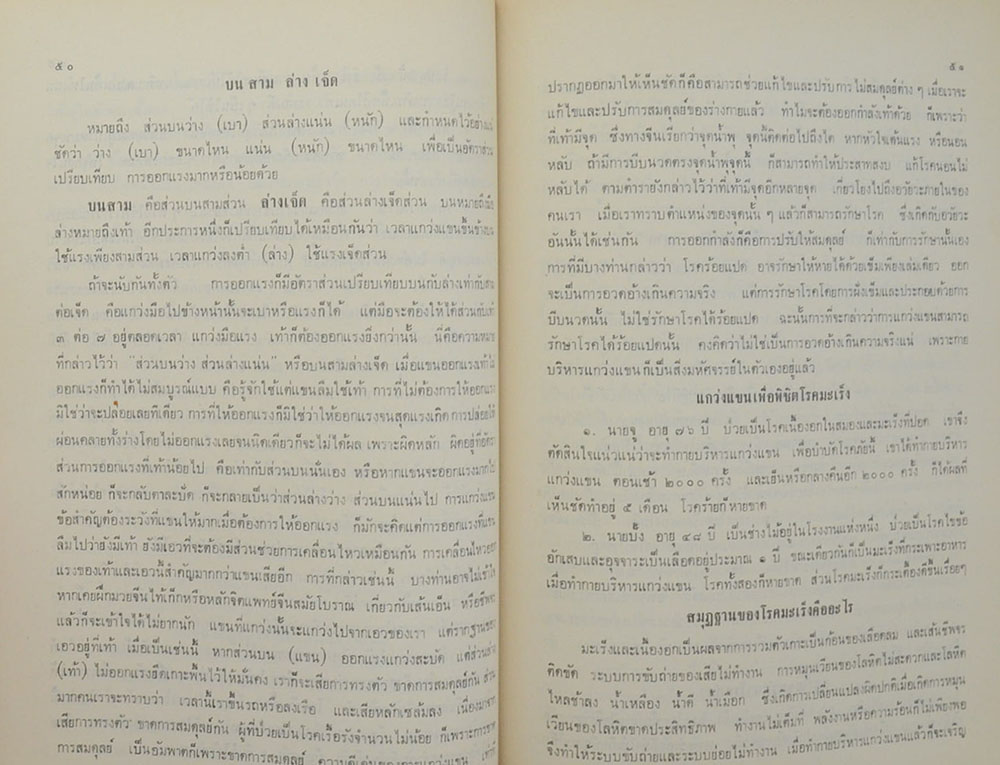 ๕๐
บน สาม ล่าง เจ็ด
หมายถึง ส่วนบนว่าง (เบา) ส่วนล่างแน่น (หนัก) และกำหนดไว้อย่าง
ชัดว่า ว่าง (เบา) ขนาดไหน แน่น (หนัก) ขนาดไหน เพื่อเป็นอัตราส่วน
เปรียบเทียบ การออกแรงมากหรือน้อยด้วย
บนสาม คือส่วนบนสามส่วน ล่างเจ็ด คือส่วนล่างเจ็ดส่วน บนหมายถึง
ล่างหมายถึงเท้า อีกประการหนึ่งก็เปรียบเทียบได้เหมือนกันว่า เวลาแกว่งแขนขึ้นข้างบน
ใช้แรงเพียงสามส่วน เวลาแกว่งลงต่ำ (ล่าง) ใช้แรงเจ็ดส่วน
ถ้าจะนับกันทั้งตัว การออกแรงก็มีอัตราส่วนเปรียบเทียบบนกับล่างเท่ากับสาม
ต่อเจ็ด คือแกว่งมือไปข้างหน้านั้นจะเบาหรือแรงก็ได้ แต่มือจะต้องให้ได้ส่วนกับเท้า
๓ ต่อ ๗ อยู่ตลอดเวลา แกว่งมือแรง เท้าก็ต้องออกแรงยิ่งกว่านั้น นี่คือความหมาย
ที่กล่าวไว้ว่า "ส่วนบนว่าง ส่วนล่างแน่น" หรือบนสามล่างเจ็ด เมื่อแขนออกแรงเท้าไม่
ออกแรงก็ทำได้ไม่สมบูรณ์แบบ คือรู้จักใช้แต่แขนลืมใช้เท้า การที่ไม่ต้องการให้ออกแรง
มิใช่ว่าจะปล่อยเลยทีเดียว การที่ให้ออกแรงก็มิใช่ว่าให้ออกแรงจนสุดแรงเกิด การปล่อยให้
ผ่อนคลายทั้งร่างโดยไม่ออกแรงเลยจนนิดเดียวก็จะไม่ได้ผล เพราะผิดหลัก ผิดอยู่ที่อัตรา
ส่วนการออกแรงที่เท้าน้อยไป คือเท่ากับส่วนบนนั่นเอง หรือหากแขนจะออกแรงมากไป
สักหน่อย ก็จะกลับตาละปัด ก็จะกลายเป็นว่าส่วนล่างว่าง ส่วนบนแน่นไป การแกว่งแขน
ข้อสำคัญต้องระวังที่แขนให้มากเมื่อต้องการให้ออกแรง ก็มักจะคิดแต่การออกแรงที่แขน
ลืมไปว่ายังมีเท้า ยังมีเอวที่จะต้องมีส่วนช่วยการเคลื่อนไหวเหมือนกัน การเคลื่อนไหวออก
แรงของเท้าและเอวนี้สำคัญมากกว่าแขนเสียอีก การที่กล่าวเช่นนี้ บางท่านอาจไม่เข้าใจ
หากเคยฝึกมวยจีนไท้เก็กหรือหลักจิตแพทย์จีนสมัยโบราณ เกี่ยวกับเส้นเอ็น หรือชีพจร
แล้วก็จะเข้าใจได้ไม่ยากนัก แขนที่แกว่งนั้นจะแกว่งไปจากเอวของเรา แต่รากฐานของ
เอวอยู่ที่เท้า เมื่อเป็นเช่นนี้ หากส่วนบน (แขน) ออกแรงแกว่งสะบัด แต่ส่วนล่าง
(เท้า) ไม่ออกแรงยึดเกาะพื้นไว้ให้มั่นคง เราก็จะเสียการทรงตัว ขาดการสมดุลย์กัน ส่วน
มากคนเราจะทราบว่า เวลานี้เราขึ้นรถหรือลงเรือ และเสียหลักเซล้มลง เนื่องมาจาก
เสียการทรงตัว ขาดการสมดุลย์กัน ผู้ที่ป่วยเป็นโรคเรื้อรังจำนวนไม่น้อย ก็เพราะขาด
การสมดุลย์ เป็นอัมพาตก็เพราะขาดการสมดุลย์
๕๑
ปรากฏออกมาให้เห็นชัดก็คือสามารถช่วยแก้ไขและปรับการไม่สมดุลย์ต่าง ๆ เมื่อเราจะ
แก้ไขและปรับการสมดุลย์ของร่างกายแล้ว ทำไมจะต้องออกกำลังเท้าด้วย ก็เพราะว่า
ที่เท้ามีจุด ซึ่งทางจีนเรียกว่าจุดน้ำพุ จุดนี้ติดต่อไปถึงใต หากหัวใจเต้นแรง หรือนอน
หลับ ถ้ามีการบีบนวดตรงจุดน้ำพุจุดนี้ ก็สามารถทำให้ประสาทสงบ แก้โรคนอนไม่
หลับได้ ตามตำรายังกล่าวไว้ว่าที่เท้ามีจุดอีกหลายจุด เกี่ยวโยงไปถึงอวัยวะภายในของ
คนเรา เมื่อเราทราบตำแหน่งของจุดนั้น ๆ แล้วก็สามารถรักษาโรค ซึ่งเกิดกับอวัยวะ
อันนั้นได้เช่นกัน การออกกำลังก็คือการปรับให้สมดุลย์ ก็เท่ากับการรักษานั้นเอง
การที่มีบางท่านกล่าวว่า โรคร้อยแปด อาจรักษาให้หายได้ด้วยเข็มเพียงเล่มเดียว ออก
จะเป็นการอวดอ้างเกินความจริง แต่การรักษาโรคโดยการฝังเข็มและประกอบด้วยการ
บีบนวดนั้น ไม่ใช่รักษาโรคได้ร้อยแปด ฉะนั้นการที่จะกล่าวว่าการแกว่งแขนสามารถ
รักษาโรคได้ร้อยแปดนั้น คงคิดว่าไม่ใช่เป็นการอวดอ้างเกินความจริงแน่ เพราะกาย
บริหารแกว่งแขนก็เป็นสิ่งมหัศจรรย์ในตัวเองอยู่แล้ว
แกว่งแขนเพื่อพิชิตโรคมะเร็ง
๑. นายจู อายุ ๗๖ ปี ป่วยเป็นโรคเนื้องอกในสมองและมะเร็งที่ปอด เขาจึง
ตัดสินใจแน่วแน่ว่าจะทำกายบริหารแกว่งแขน เพื่อบำบัดโรคภัยนี้ เขาได้ทำกายบริหาร
แกว่งแขน ตอนเช้า ๒๐๐๐ ครั้ง และเย็นหรือกลางคืนอีก ๒๐๐๐ ครั้ง ก็ได้ผลที่
เห็นชัดทำอยู่ ๕ เดือน โรคร้ายก็หายขาด
๒. นายบั้ง อายุ ๔๘ ปี เป็นช่างไม้อยู่ในโรงงานแห่งหนึ่ง ป่วยเป็นโรคไขข้อ
อักเสบและอุจจาระเป็นเลือดอยู่ประมาณ ๑ ปี ขณะเดียวกันก็เป็นมะเร็งที่กระเพาะอาหาร
เมื่อทำกายบริหารแกว่งแขน โรคทั้งสองก็หายขาด ส่วนโรคมะเร็งก็กระเตื้องดีขึ้นเรื่อยๆ
สมุฏฐานของโรคมะเร็งคืออะไร
มะเร็งและเนื้องอกเป็นผลจากการรวมตัวเกาะเป็นก้อนของเลือดลม และเส้นชีพจร
ติดขัด ระบบการขับถ่ายของเสียไม่ทำงาน การหมุนเวียนของโลหิตไม่สะดวกและโลหิต
ไหลช้าลง น้ำเหลือง น้ำดี น้ำเมือก ซึ่งเกิดการเปลี่ยนแปลงผิดปกติเมื่อเกิดการหมุน
เวียนของโลหิตขาดประสิทธิภาพ ทำงานไม่เต็มที่ พลังงานหรือความร้อนก็ไม่เพียงพอ
จึงทำให้ระบบขับถ่ายและระบบย่อยไม่ทำงาน เมื่อทำกายบริหารแกว่งแขนแล้วก็จะเจริญ